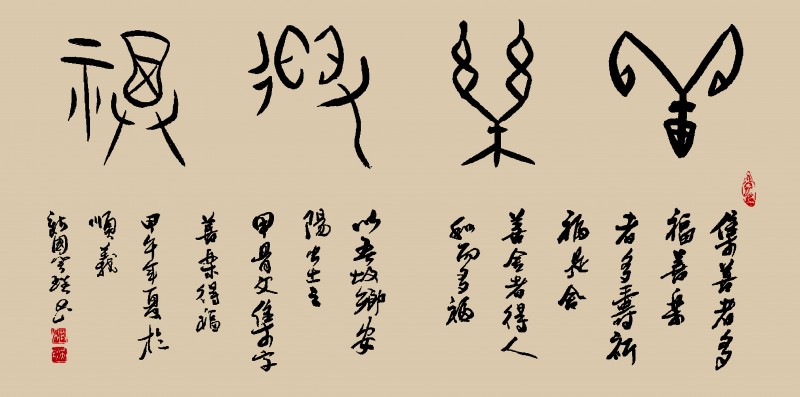 善樂得福
集善者多
福善樂
者多壽祈
福舍
善舍者得人
和而多福
以吾故鄉安
陽出土之
甲骨文集字
善樂得福
甲午年夏於
順義